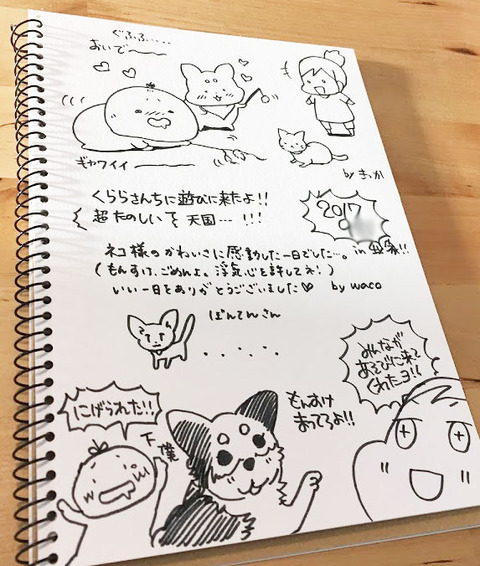 ぐふふ・・・・・
おいで〜〜
ギャワイイ〜〜
by きっか
くららさんちに遊びに来たよ!!
超たのしいて 天国・・・!!!
2017
in 家!!
ネコ様のかわいさに感動した一日でした…。
(もんすけ、ごめんよ。浮気心を許してネ!)
いい一日をありがとうございました♡ by waco
ぽんてんさん
・・・・・
みんなが
あそびに来て
くれたヨ!!
にげられた!!
下僕
もんすけ
まってろよ!!